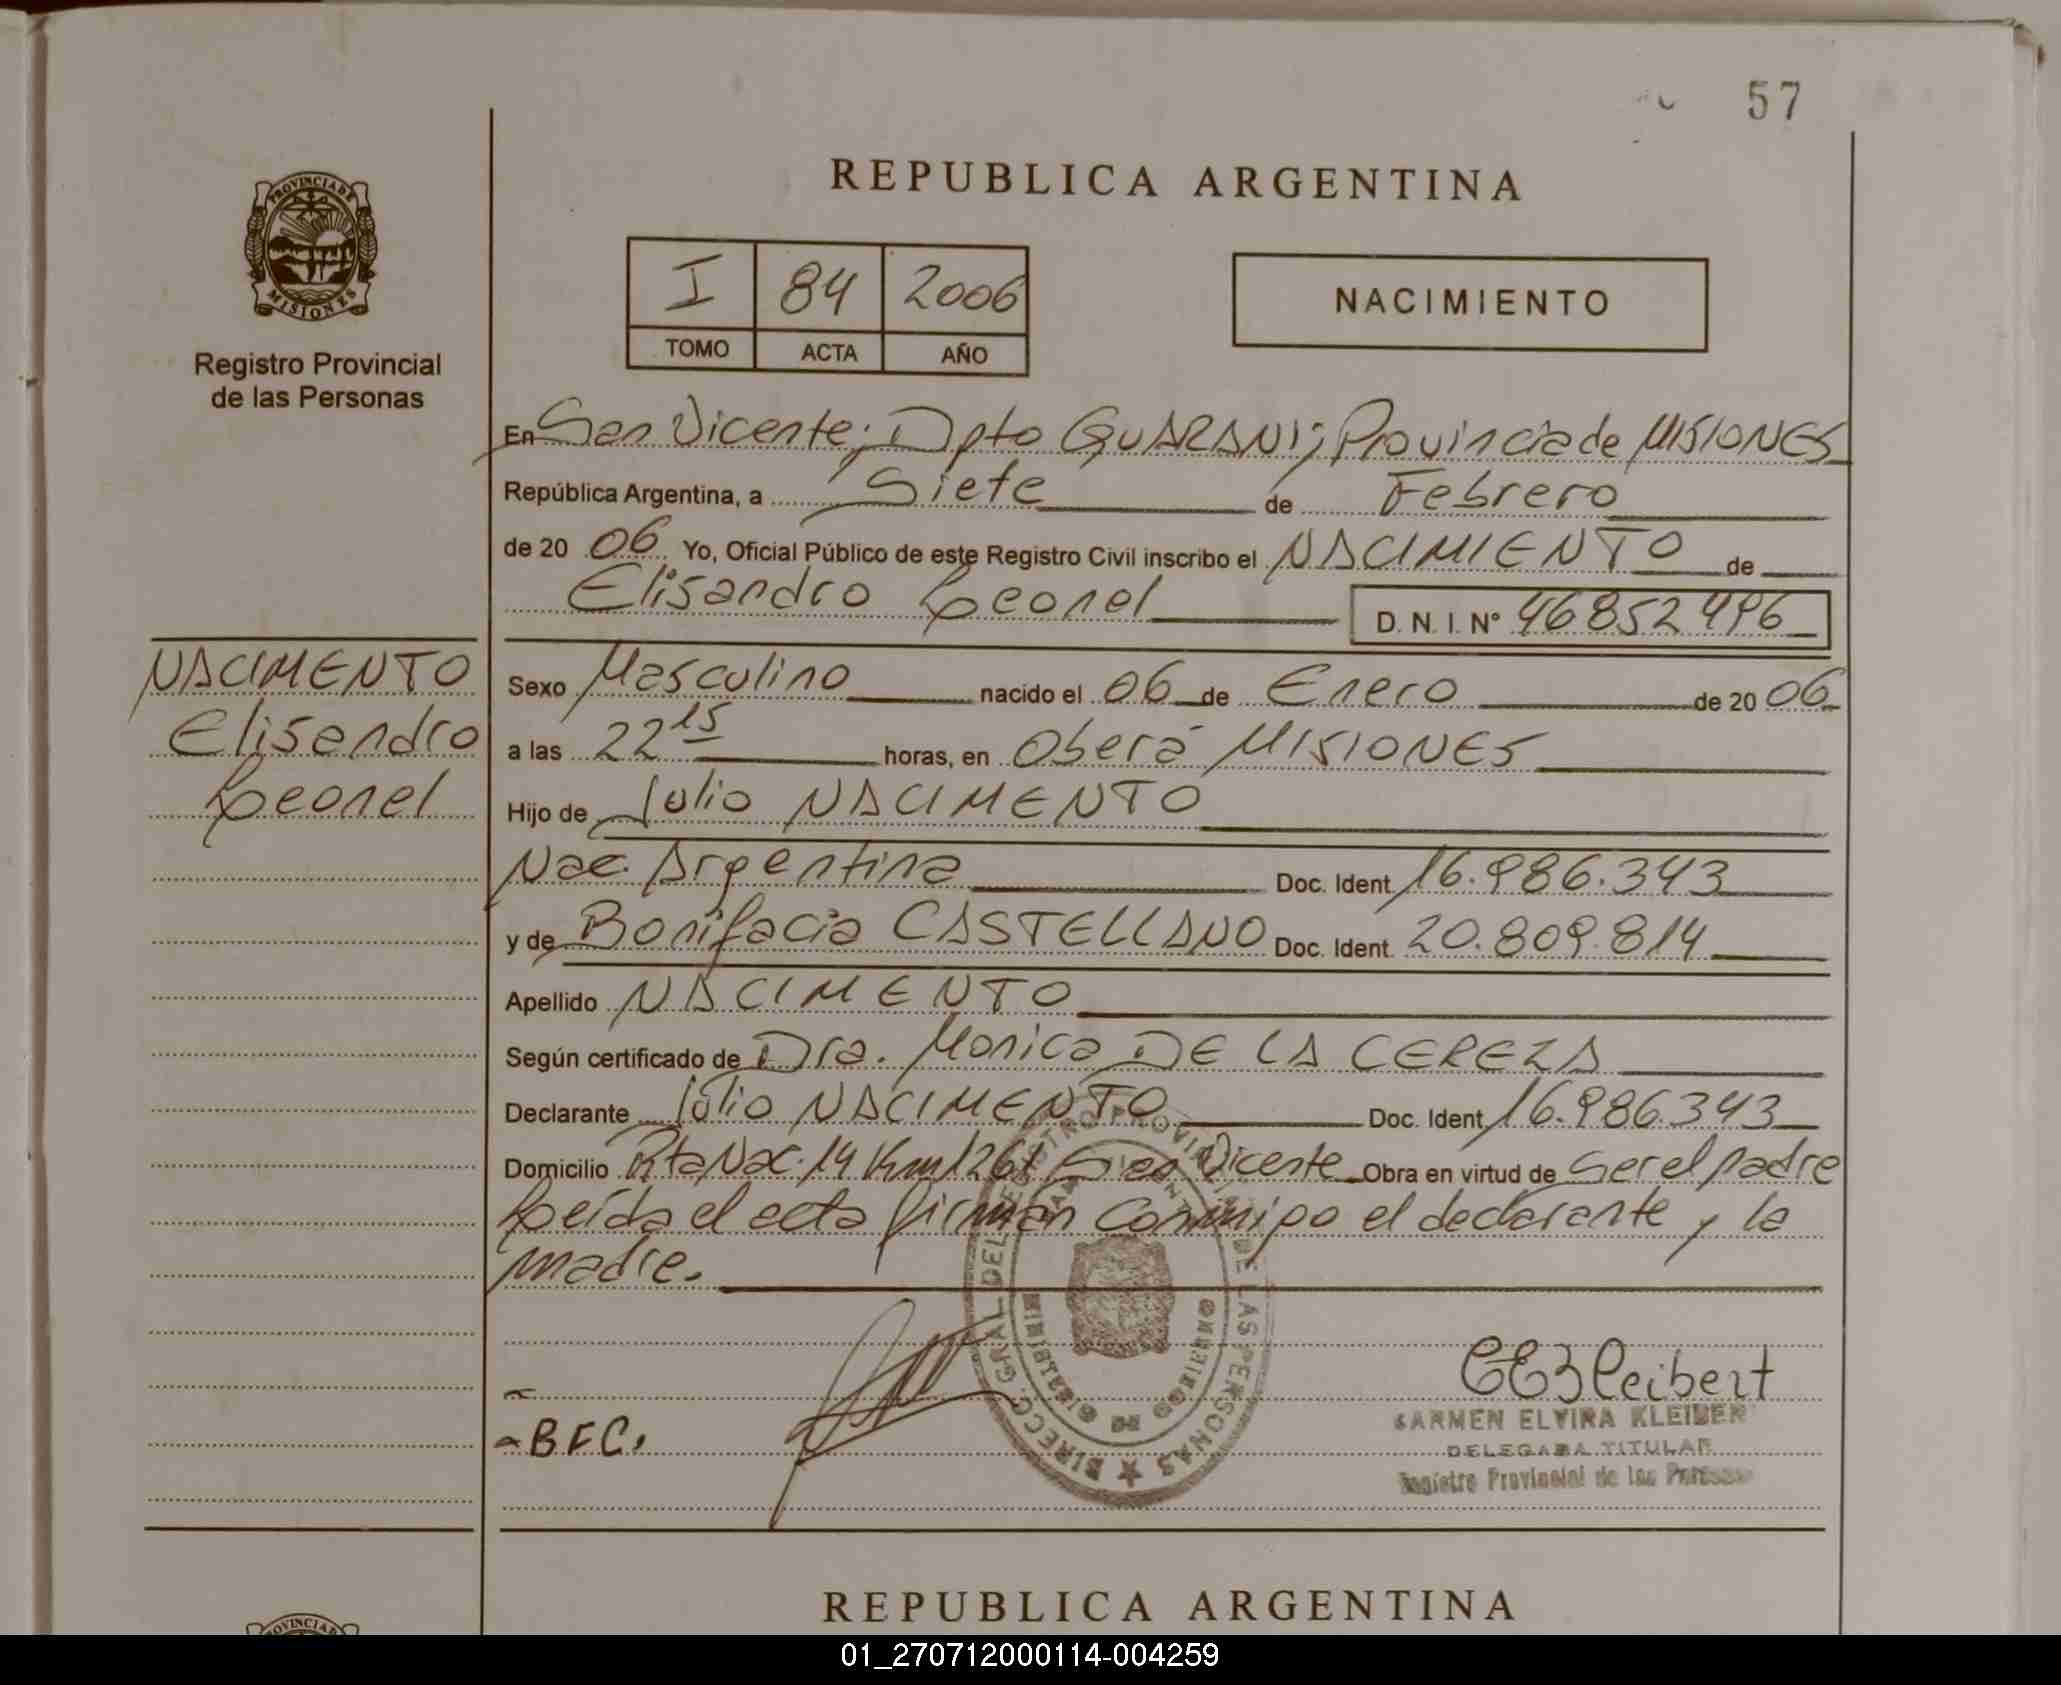 57
REPUBLICA ARGENTINA
PROVINCIA DE
MISIONES
I 84 2006
TOMO ACTA AÑO
NACIMIENTO
Registro Provincial
de las Personas
En San Vicente; Dpto GUARANI; Provincia de MISIONES
República Argentina, a Siete de Febrero
de 20 06 Yo, Oficial Público de este Registro Civil inscribo el NACIMIENTO de
Elisandro Leonel D. N. I. N° 46852496
NACIMENTO
Elisandro
Leonel
Sexo Masculino nacido el 06 de Enero de 20 06
a las 22 15 horas, en Oberá MISIONES
Hijo de Julio NACIMENTO
Nac. Argentina Doc. Ident. 16.986.343
y de Bonifacia CASTELLANO Doc. Ident. 20.809.814
Apellido NACIMENTO
Según certificado de Dra. Monica DE LA CEREZA
Declarante Julio NACIMENTO Doc. Ident. 16.986.343
Domicilio Rta Nac. 14 Km 1261 San Vicente Obra en virtud de Ser el padre
Leída el acta firman Conmigo el declarante y la
madre.
DIRECC. GRAL. DEL REGISTRO PROVINCIAL DE LAS PERSONAS
- BFC.
CEKleibert
CARMEN ELVIRA KLEIBERT
DELEGADA TITULAR
Registro Provincial de las Personas
REPUBLICA ARGENTINA
01_270712000114-004259